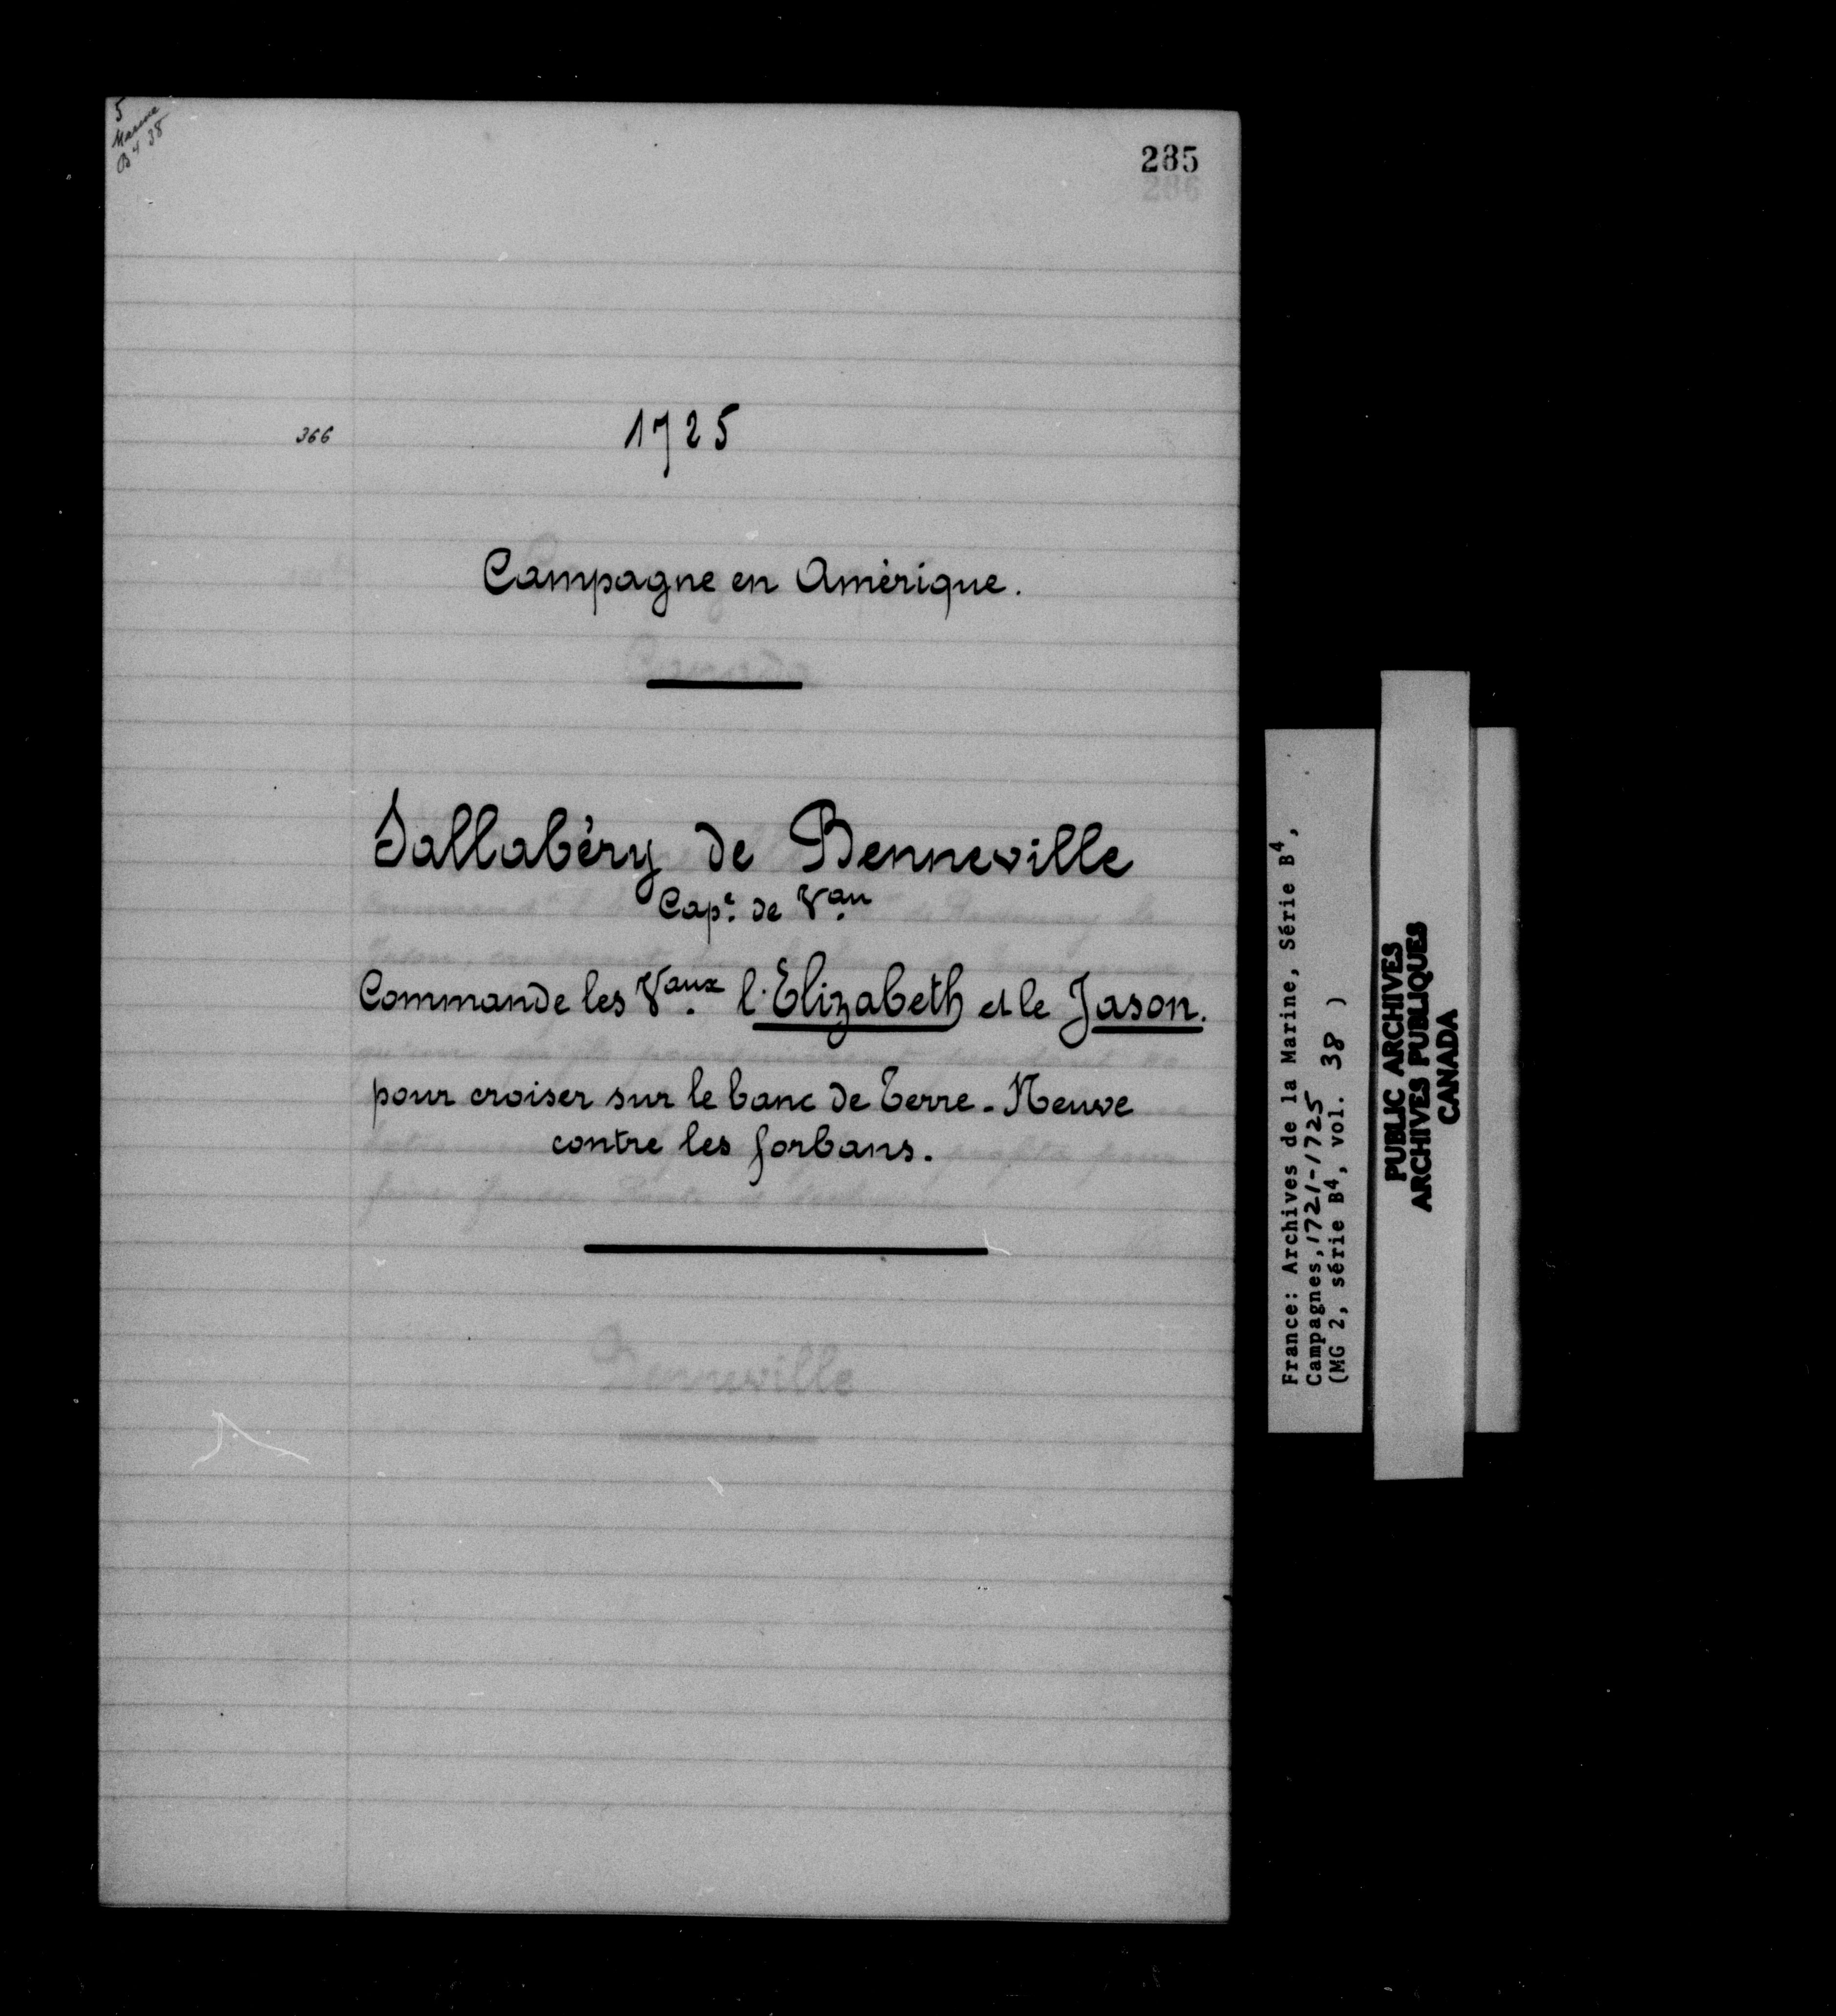 5
Marine
B4 38
285
366
1725
Campagne en Amérique.
Sallabéry de Benneville
Cap.e de V.au
Commande les V.aux l'Elizabeth et le Jason.
pour croiser sur le banc de Terre-Neuve
contre les forbans.
Benneville
France: Archives de la Marine, Série B4,
Campagnes, 1721-1725
(MG 2, série B4, vol. 38 )
PUBLIC ARCHIVES
ARCHIVES PUBLIQUES
CANADA